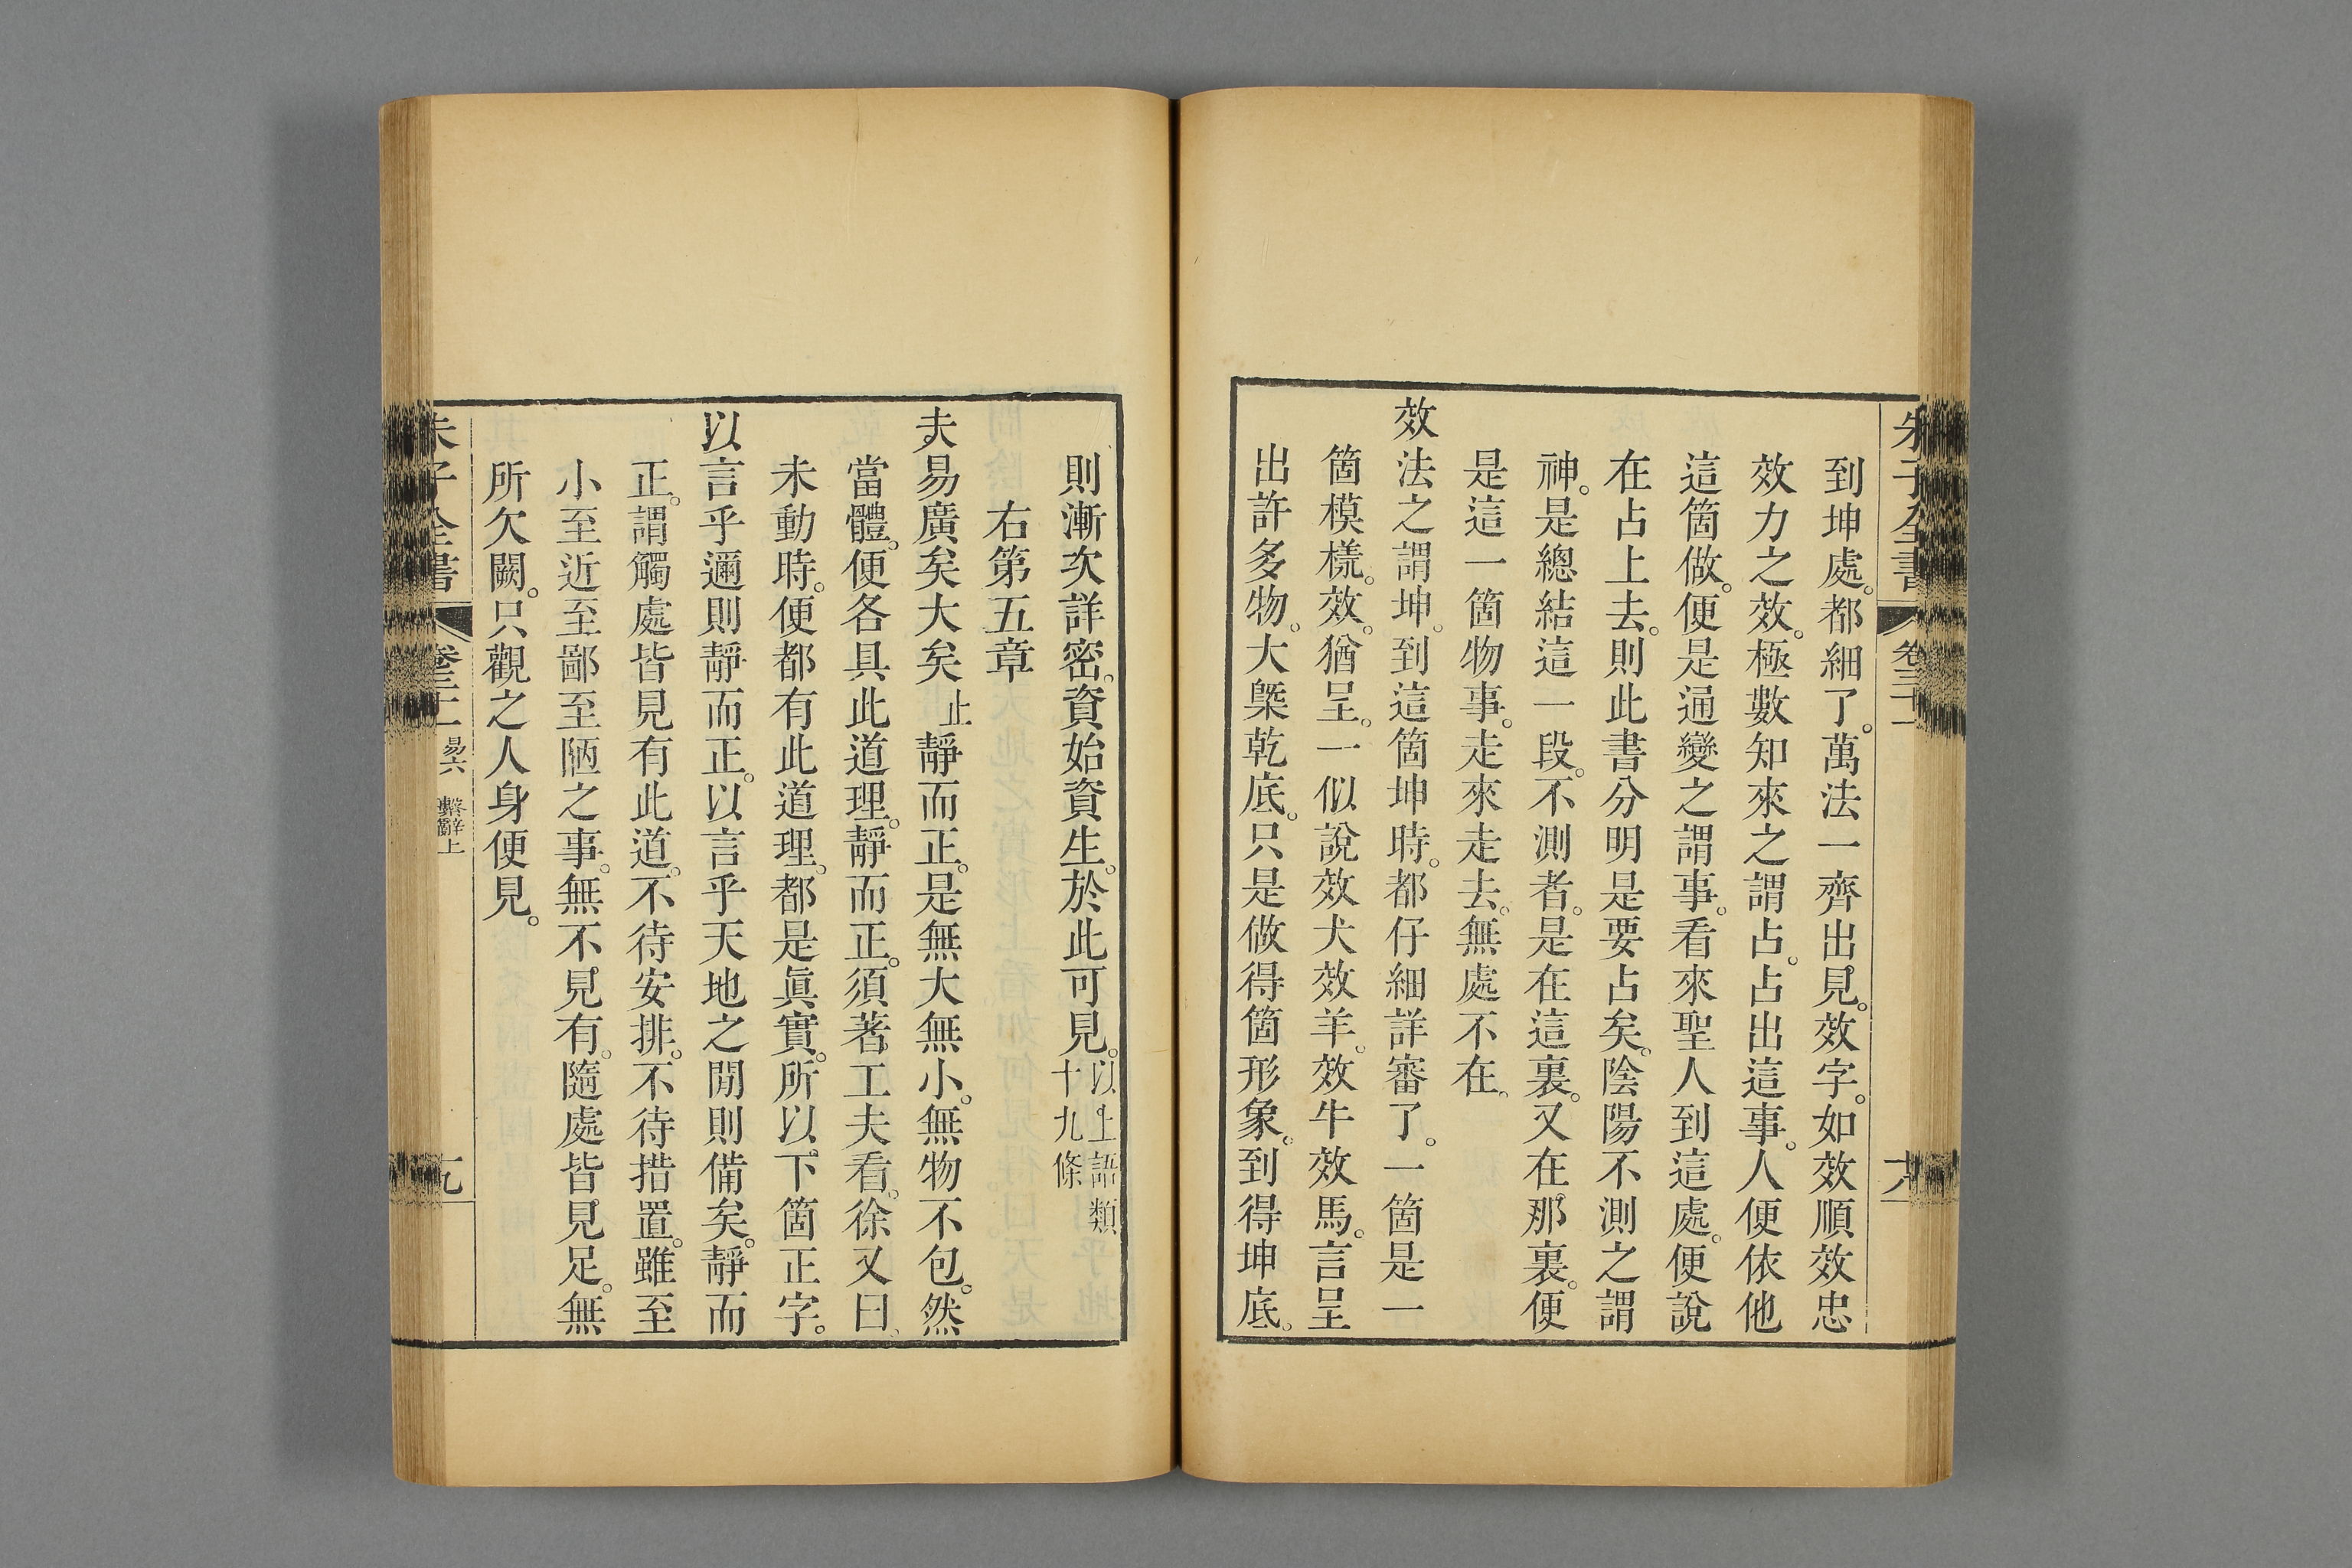 朱子全書 卷三十一 十八
到坤處。都細了。萬法一齊出見。效字。如效順效忠
效力之效。極數知來之謂占。占出這事。人便依他
這箇做。便是通變之謂事。看來聖人到這處。便說
在占上去。則此書分明是要占矣。陰陽不測之謂
神。是總結這一段。不測者。是在這裏。又在那裏。便
是這一箇物事。走來走去。無處不在。
效法之謂坤。到這箇坤時。都仔細詳審了。一箇是一
箇模樣。效。猶呈。一似說效犬效羊。效牛效馬。言呈
出許多物。大槩乾底。只是做得箇形象。到得坤底。
則漸次詳密。資始資生。於此可見。以上語類
十九條
右第五章
夫易廣矣大矣止靜而正。是無大無小。無物不包。然
當體。便各具此道理。靜而正。須著工夫看。徐又曰。
未動時。便都有此道理。都是眞實。所以下箇正字。
以言乎邇則靜而正。以言乎天地之閒則備矣。靜而
正。謂觸處皆見有此道。不待安排。不待措置。雖至
小至近至鄙至陋之事。無不見有。隨處皆見足。無
所欠闕。只觀之人身便見。
朱子全書 卷三十一 易六 繫辭上